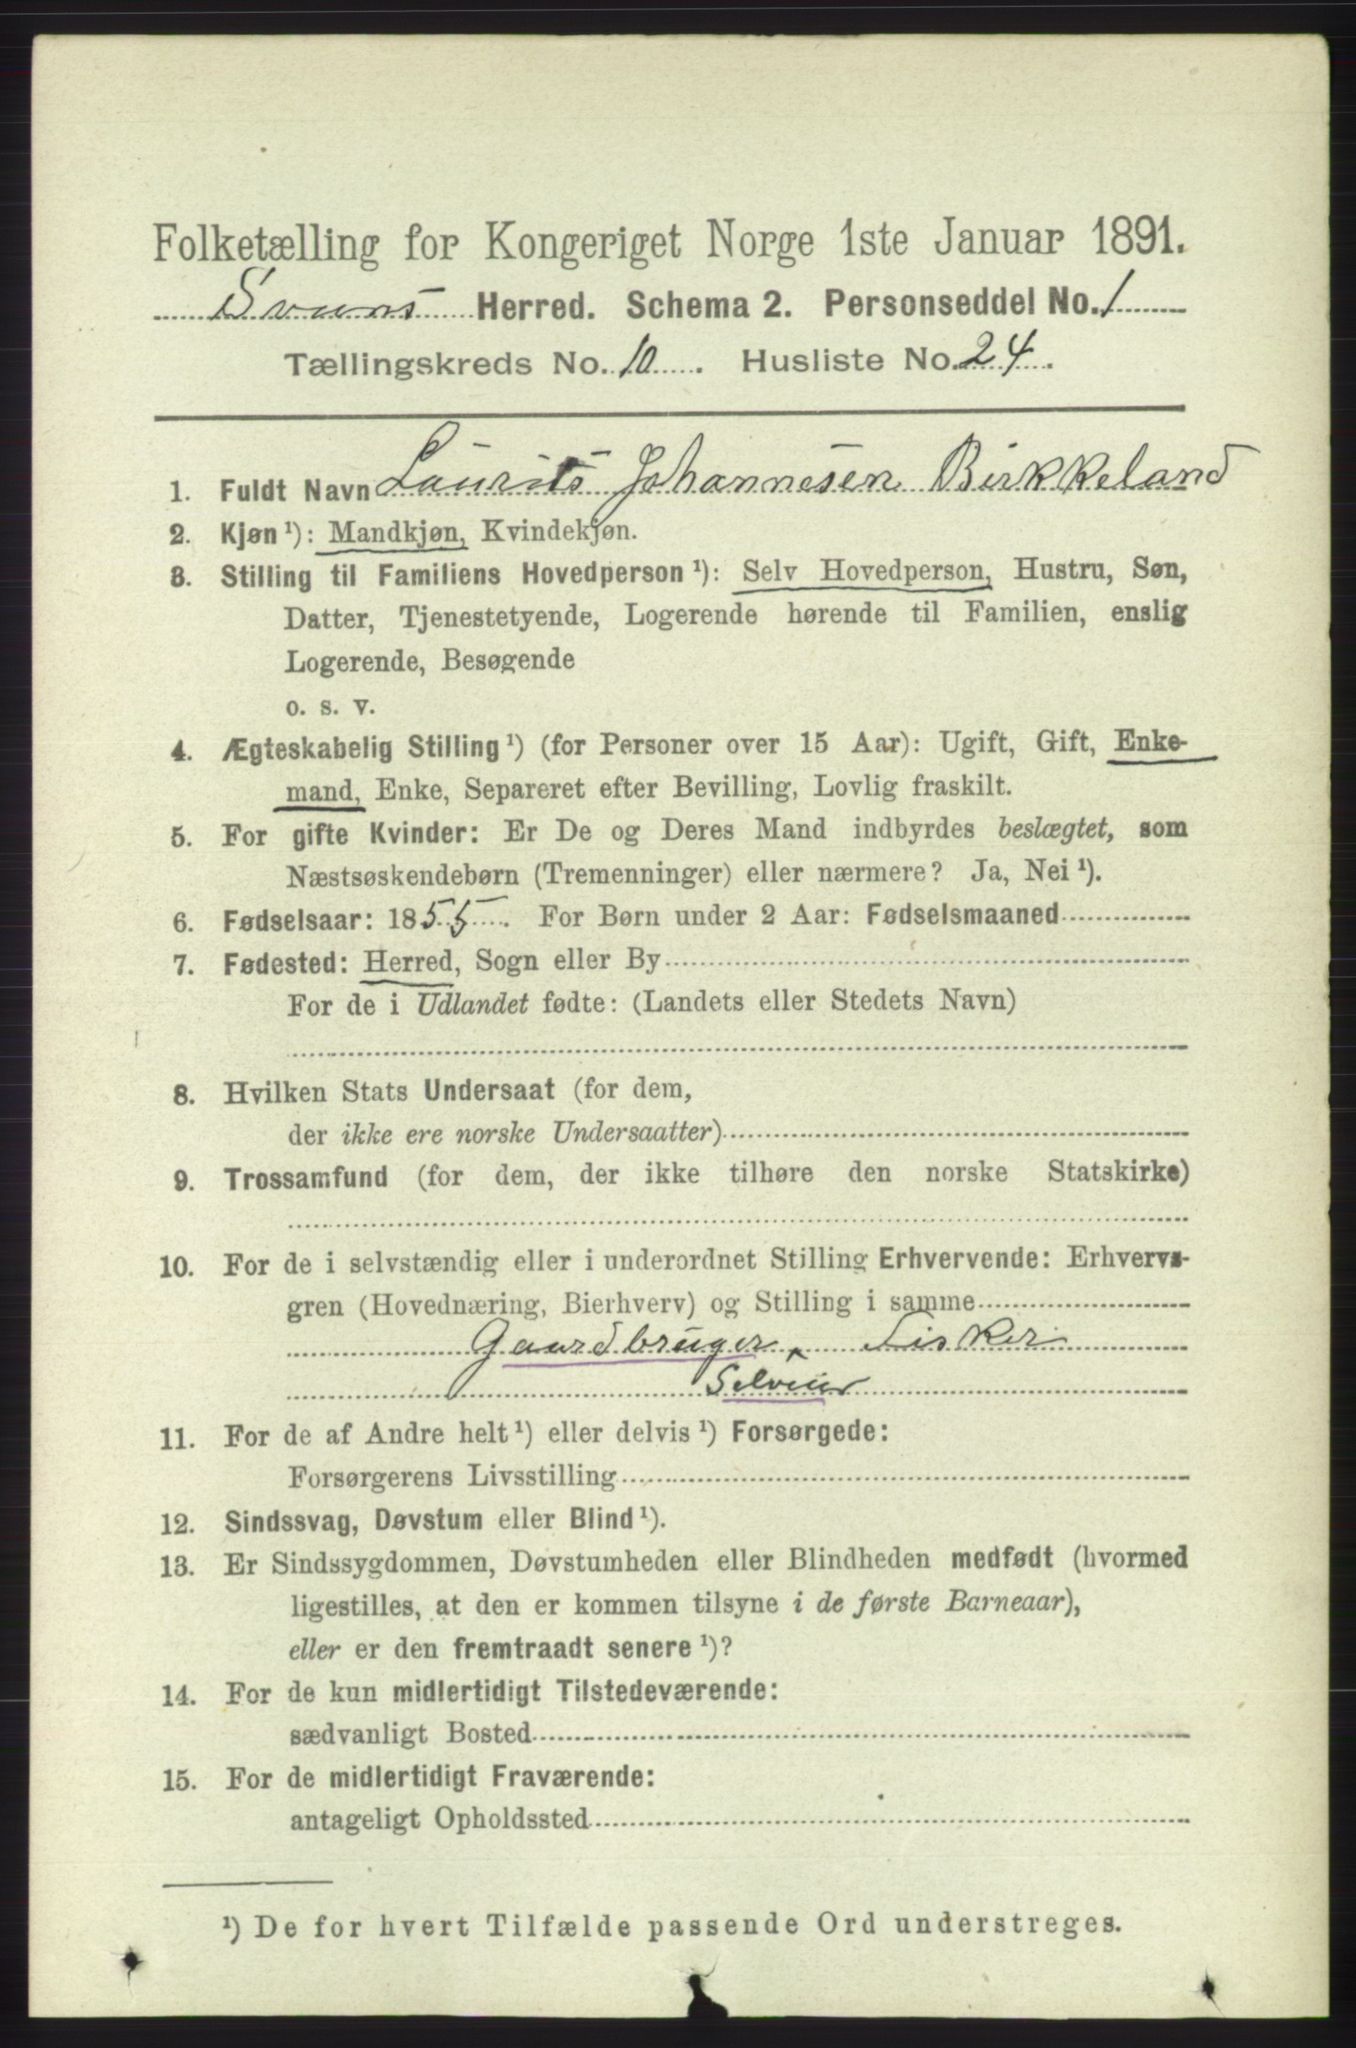 Folketælling for Kongeriget Norge 1ste Januar 1891.
Svanø Herred. Schema 2. Personseddel No. 1
Tællingskreds No. 10. Husliste No. 24.
1. Fuldt Navn Laurits Johannesen Birkkeland
2. Kjøn ¹): Mandkjøn, Kvindekjøn.
3. Stilling til Familiens Hovedperson ¹): Selv Hovedperson, Hustru, Søn,
Datter, Tjenestetyende, Logerende hørende til Familien, enslig
Logerende, Besøgende
o. s. v.
4. Ægteskabelig Stilling ¹) (for Personer over 15 Aar): Ugift, Gift, Enke-
mand, Enke, Separeret efter Bevilling, Lovlig fraskilt.
5. For gifte Kvinder: Er De og Deres Mand indbyrdes beslægtet, som
Næstsøskendebørn (Tremenninger) eller nærmere? Ja, Nei ¹).
6. Fødselsaar: 1855. For Børn under 2 Aar: Fødselsmaaned
7. Fødested: Herred, Sogn eller By
For de i Udlandet fødte: (Landets eller Stedets Navn)
8. Hvilken Stats Undersaat (for dem,
der ikke ere norske Undersaatter)
9. Trossamfund (for dem, der ikke tilhøre den norske Statskirke)
10. For de i selvstændig eller i underordnet Stilling Erhvervende: Erhvervs-
gren (Hovednæring, Bierhverv) og Stilling i samme
Gaardbruger Fisker
Selveier
11. For de af Andre helt ¹) eller delvis ¹) Forsørgede:
Forsørgerens Livsstilling
12. Sindssvag, Døvstum eller Blind ¹).
13. Er Sindssygdommen, Døvstumheden eller Blindheden medfødt (hvormed
ligestilles, at den er kommen tilsyne i de første Barneaar),
eller er den fremtraadt senere ¹)?
14. For de kun midlertidigt Tilstedeværende:
sædvanligt Bosted
15. For de midlertidigt Fraværende:
antageligt Opholdssted
¹) De for hvert Tilfælde passende Ord understreges.